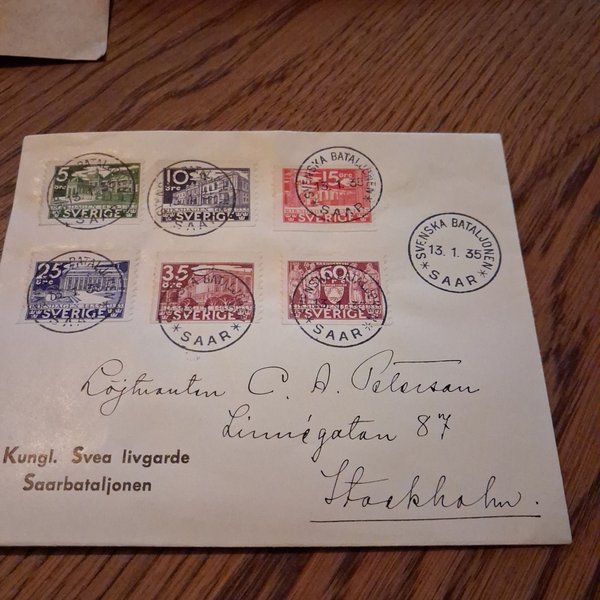 5 öre
SVERIGE
SVENSKA BATALJONEN
SAAR
10 öre
SVERIGE
SAAR
15 öre
SVENSKA BATALJONEN
SAAR
SVENSKA BATALJONEN
13. 1. 35
* SAAR *
25 öre
SVERIGE
SAAR
35 öre
SVERIGE
* SAAR *
60
SVERIGE
* SAAR *
Löjtnanten C. A. Peterson
Linnégatan 87
Stockholm.
Kungl. Svea livgarde
Saarbataljonen